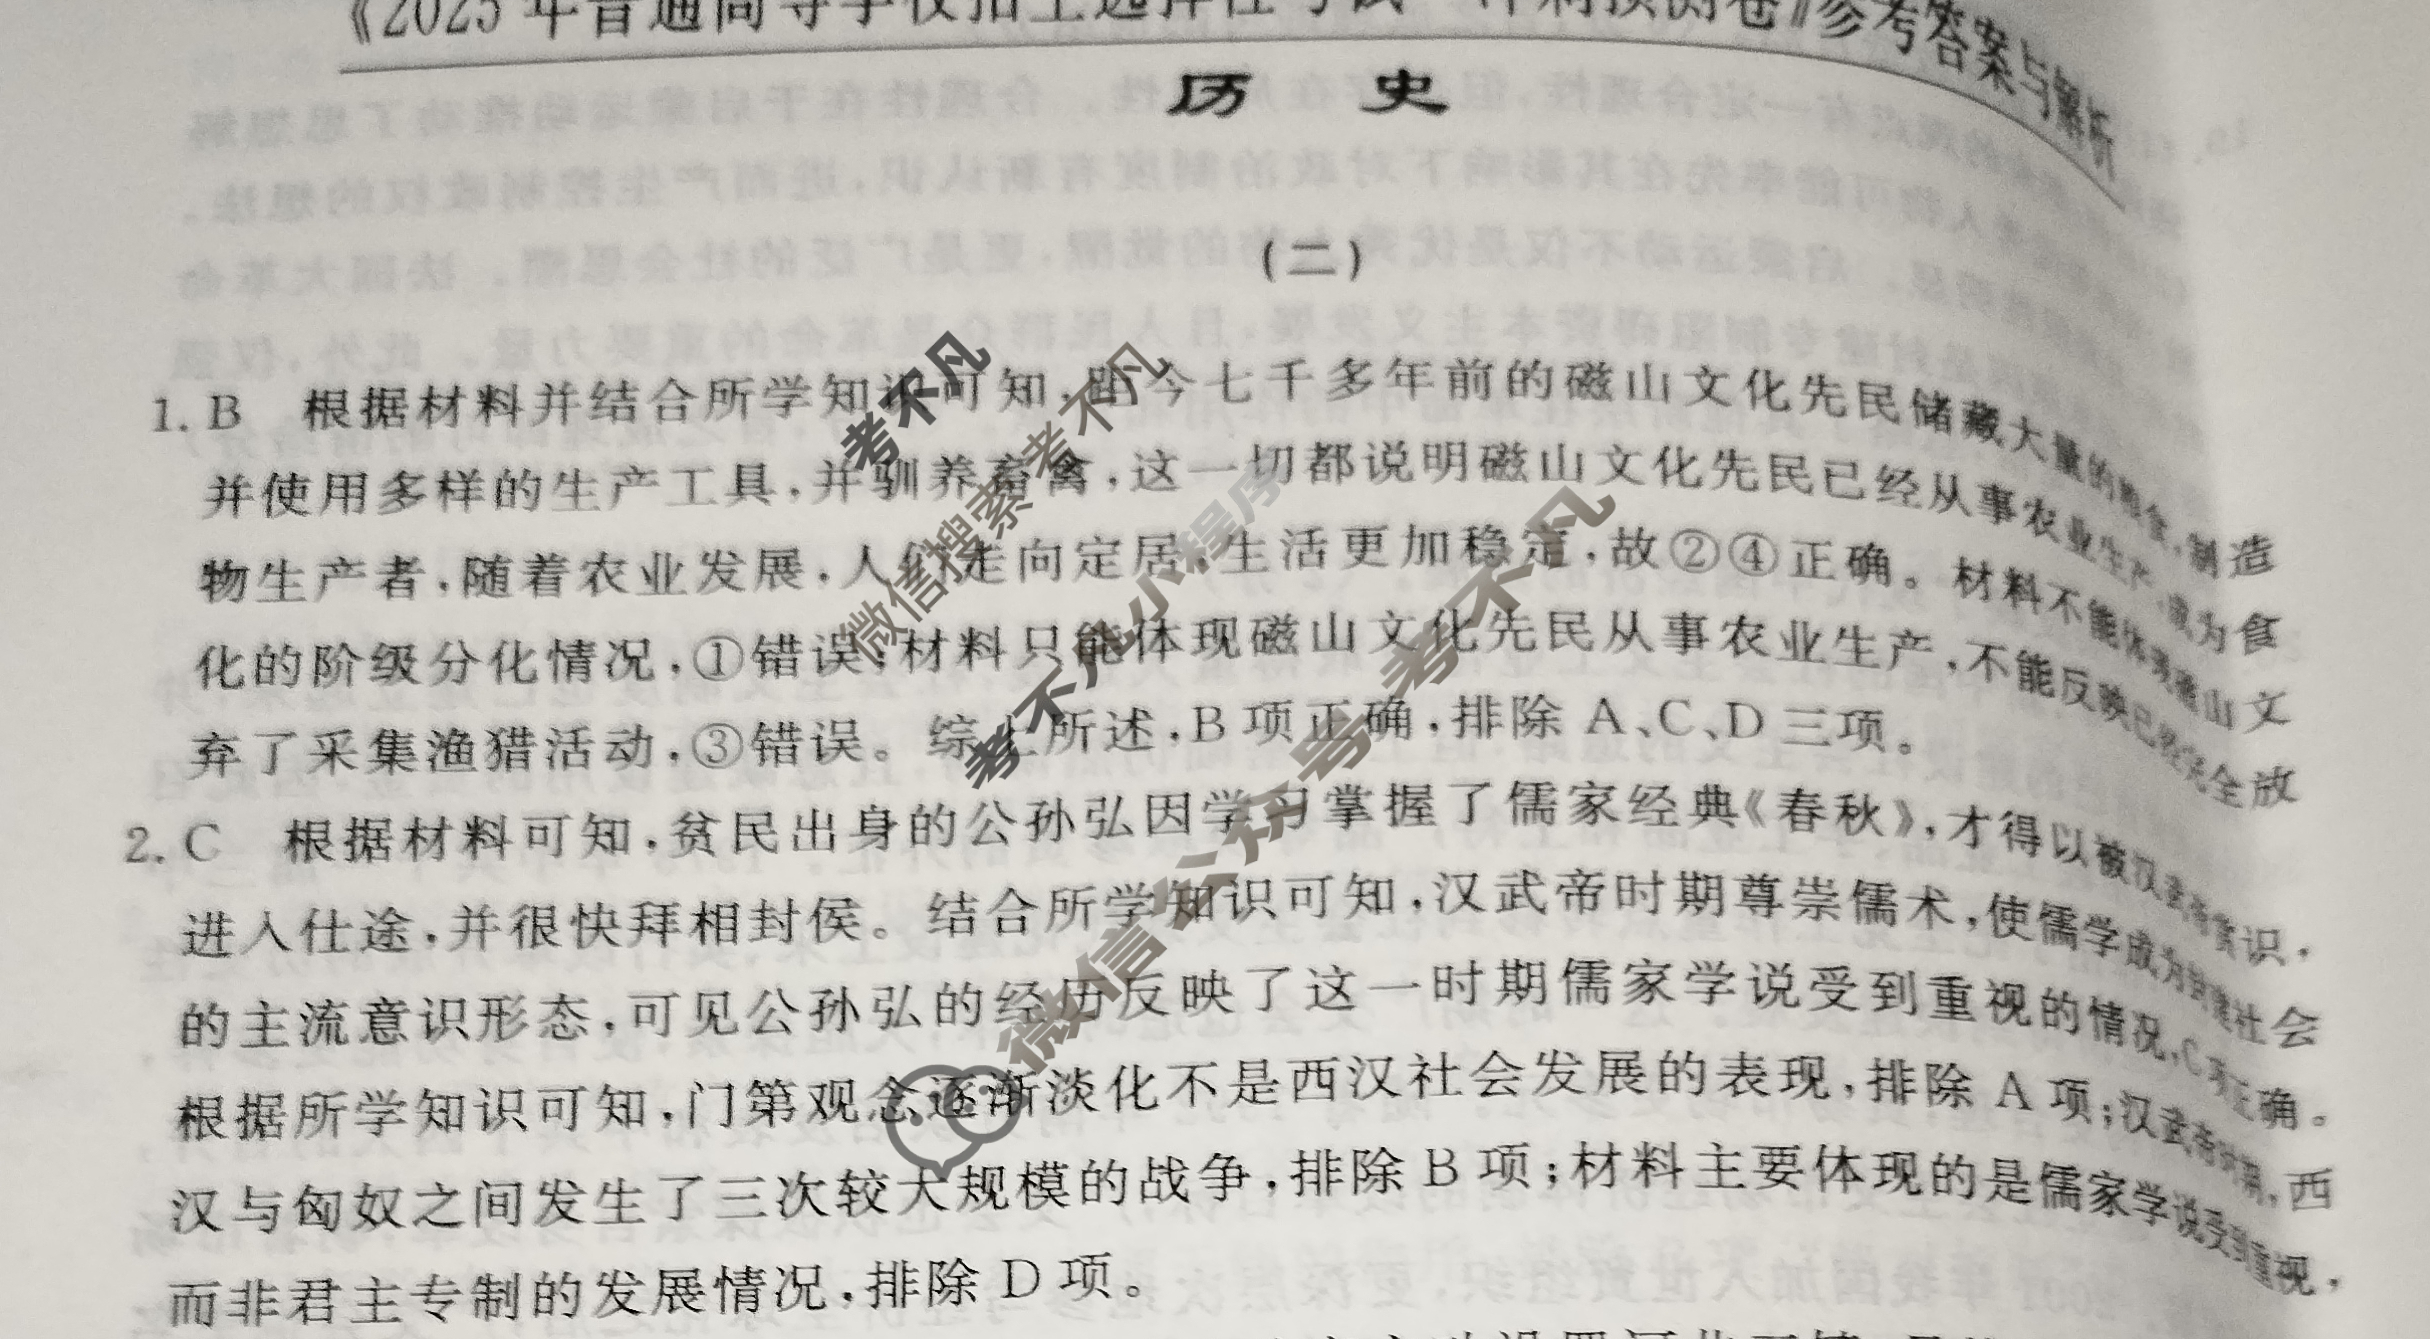 《2025年普通高等学校招生选择性考试 冲刺预测卷》参考答案与解析
历 史
(二)
1. B 根据材料并结合所学知识可知,距今七千多年前的磁山文化先民储藏大量的粮食,制造
并使用多样的生产工具,并驯养畜禽,这一切都说明磁山文化先民已经从事农业生产,成为食
物生产者,随着农业发展,人们走向定居,生活更加稳定,故②④正确。材料不能体现磁山文
化的阶级分化情况,①错误;材料只能体现磁山文化先民从事农业生产,不能反映已经完全放
弃了采集渔猎活动,③错误。综上所述,B项正确,排除A、C、D三项。
2. C 根据材料可知,贫民出身的公孙弘因学习掌握了儒家经典《春秋》,才得以被汉武帝赏识,
进入仕途,并很快拜相封侯。结合所学知识可知,汉武帝时期尊崇儒术,使儒学成为封建社会
的主流意识形态,可见公孙弘的经历反映了这一时期儒家学说受到重视的情况,C项正确。
根据所学知识可知,门第观念逐渐淡化不是西汉社会发展的表现,排除A项;汉武帝时期,西
汉与匈奴之间发生了三次较大规模的战争,排除B项;材料主要体现的是儒家学说受到重视,
而非君主专制的发展情况,排除D项。
考不凡
微信搜索考不凡
考不凡小程序
微信公众号考不凡